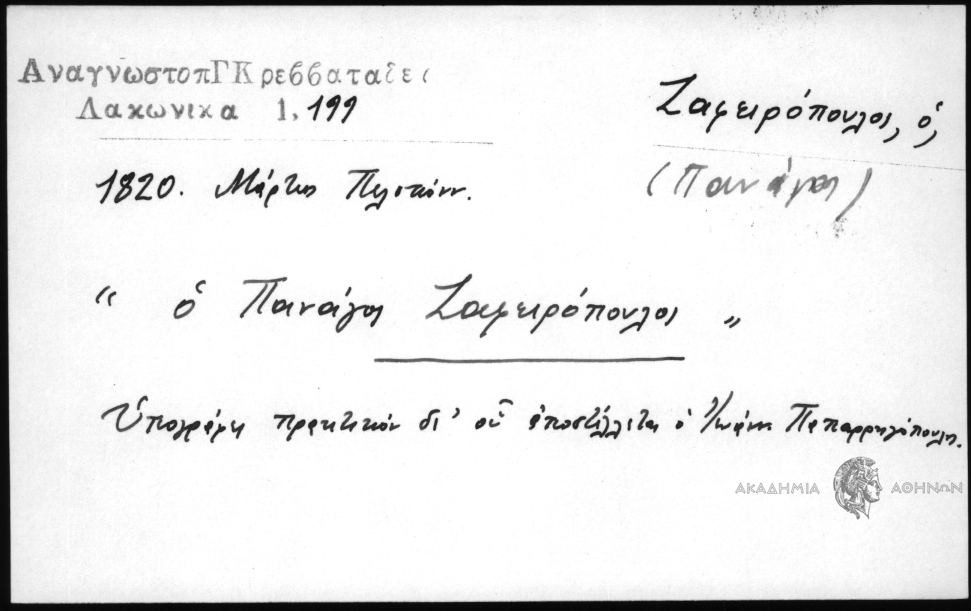 ΑναγνωστοπΓΚρεββαταδες
Λακωνικα 1, 199
Ζαφειρόπουλος, ὁ,
(Πανάγος)
1820. Μάρτιος
“ ὁ Πανάγος Ζαφειρόπουλος „
Ὑπογράφει πρακτικόν δι' οὗ ἀποστέλλεται ὁ Ἰωάννης Παπαρρηγόπουλος.
ΑΚΑΔΗΜΙΑ ΑΘΗΝΩΝ